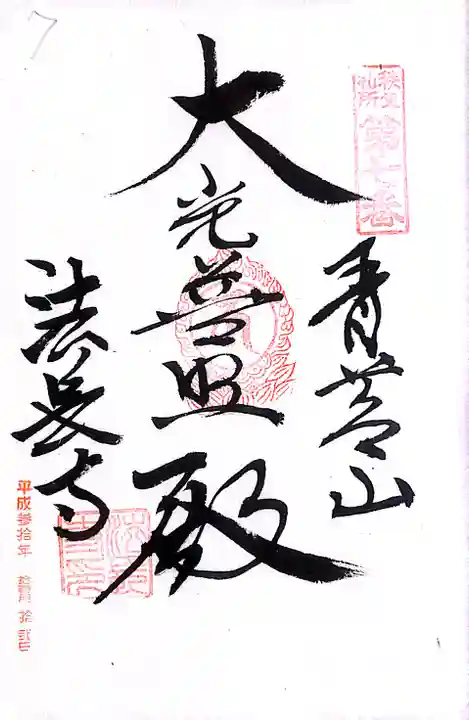 秩父
札所
第七番
青苔山
大光普照殿
法長寺
平成参拾年
7